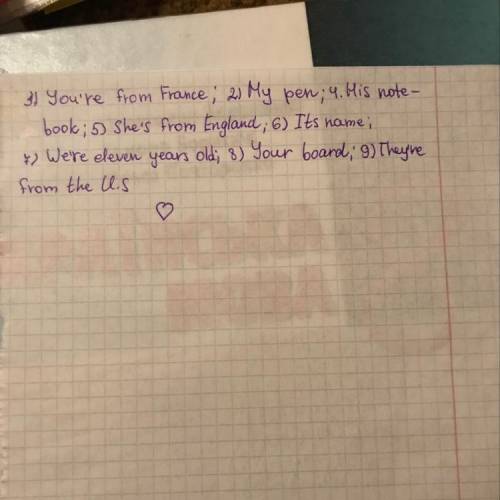 3) You're from France; 2) My pen; 4. His note-
book; 5) She's from England; 6) Its name;
7) We're eleven years old; 8) Your board; 9) They're
from the U.S
♡